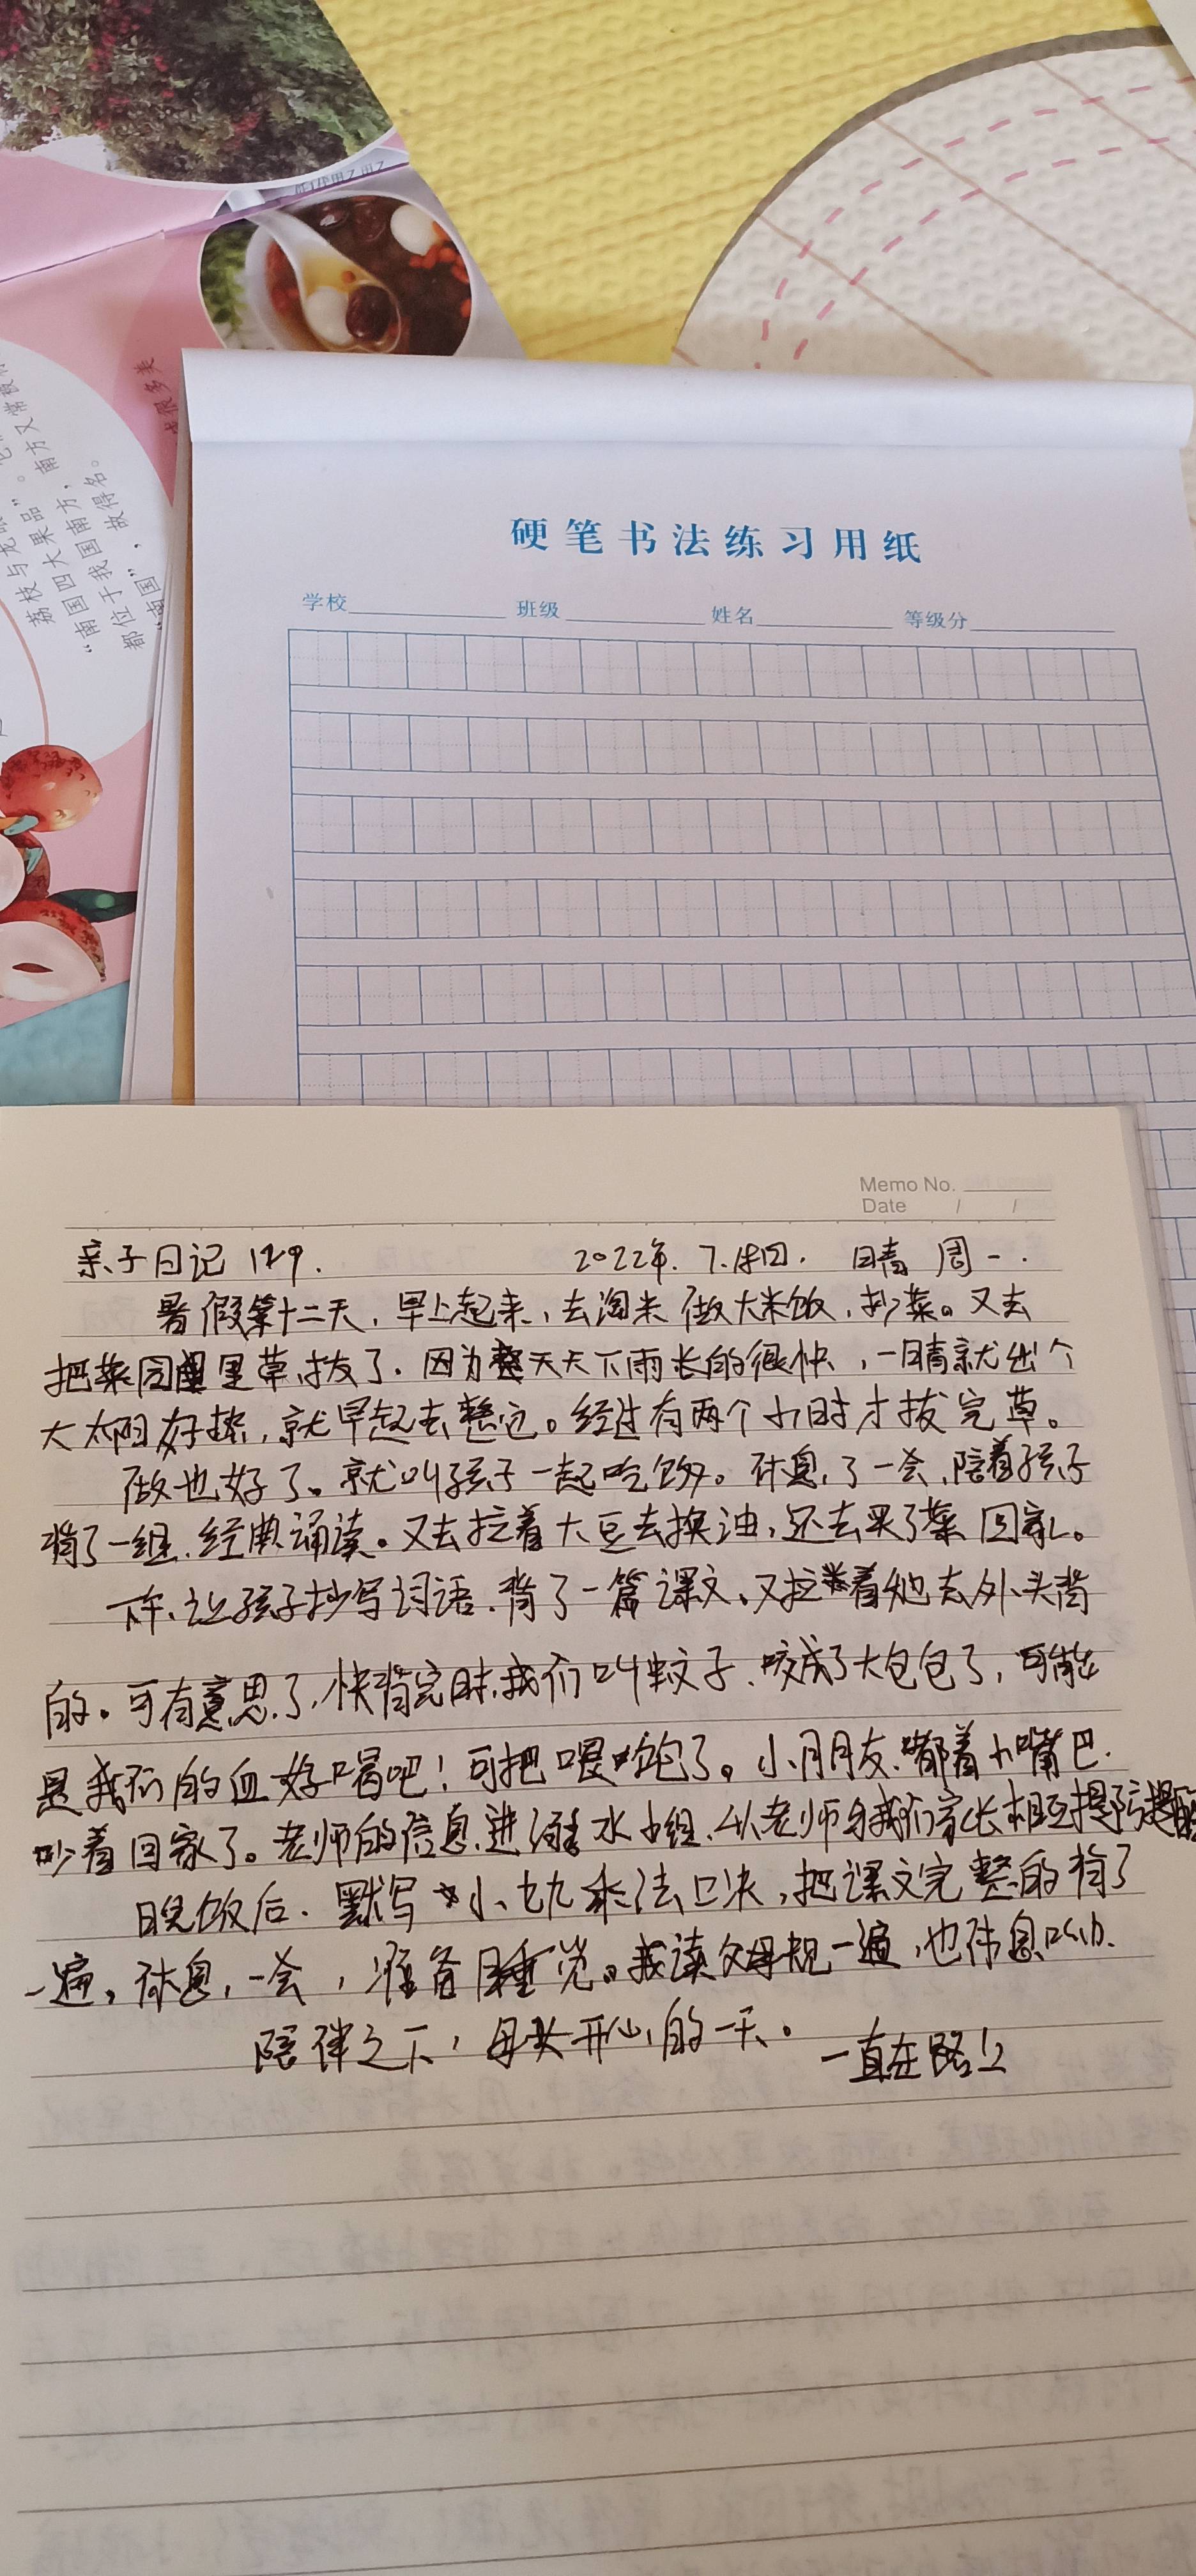 荔枝与龙
“南国四大果品”。南方又常被
都位于我国南方，故得名。
“南国”，
硬笔书法练习用纸
学校 班级 姓名 等级分
Memo No.
Date / /
亲子日记 129. 2022年. 7.18日. 晴 周一.
暑假第十二天，早上起来，去淘米做大米饭，炒菜。又去
把菜园里草拔了. 因为天天下雨长的很快，一晴就出个
大太阳好热，就早起去整它。经过有两个小时才拔完草。
做也好了。就叫孩子一起吃饭。休息，了一会，陪着孩子
背了一组，经典诵读。又去拉着大豆去换油，还去买了菜回家。
下午，让孩子抄写词语，背了一篇课文，又拉着她去外头背
的。可有意思了，快背完时，我们叫蚊子，咬成了大包包了，可能
是我们的血好喝吧！可把喂饱了。小朋友，嘟着小嘴巴.
吵着回家了。老师的信息，进溺水小组，从老师我们家长相互提
晚饭后. 默写小九九乘法口决，把课文完整的背了
一遍，休息，一会，准备睡觉。我读父母规一遍，也休息
陪伴之下，母女开心的一天。 一直在路上